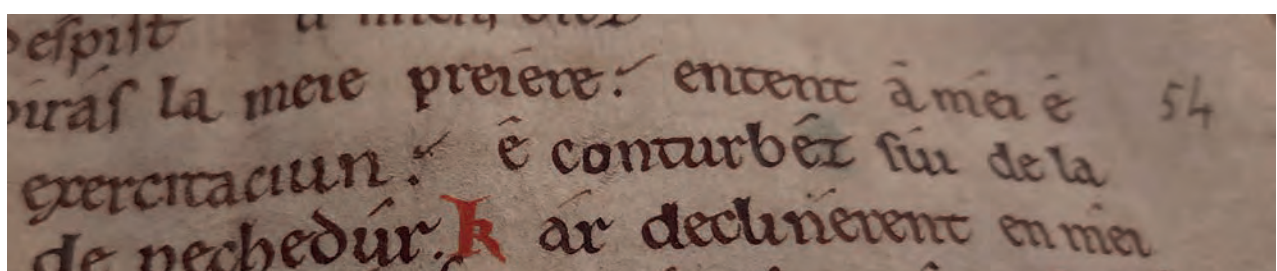 despist
piras la meie preiere. entent â mei é 54
exercitaciun. ê conturbêz sui de la
de pechedúr. kár declinérent en mei